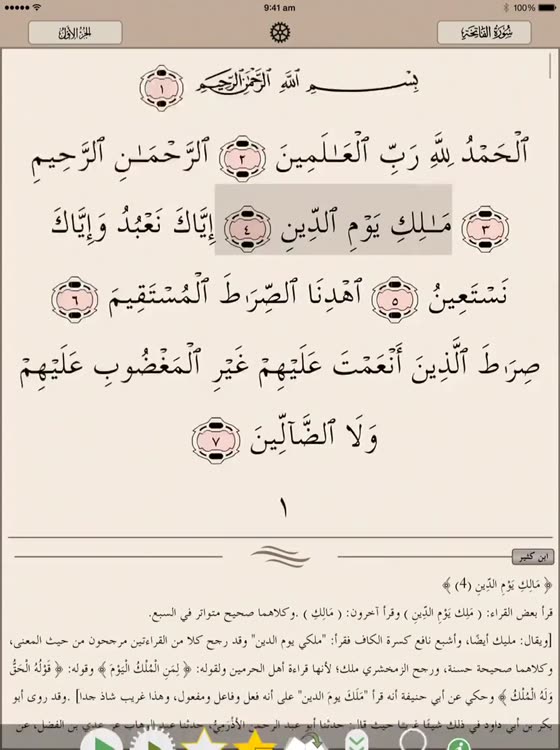 9:41 am
100%
الجزء الأول
سورة الفاتحة
بِسْمِ ٱللَّهِ ٱلرَّحْمَـٰنِ ٱلرَّحِيمِ ١
ٱلْحَمْدُ لِلَّهِ رَبِّ ٱلْعَـٰلَمِينَ ٢ ٱلرَّحْمَـٰنِ ٱلرَّحِيمِ
٣ مَـٰلِكِ يَوْمِ ٱلدِّينِ ٤ إِيَّاكَ نَعْبُدُ وَإِيَّاكَ
نَسْتَعِينُ ٥ ٱهْدِنَا ٱلصِّرَٰطَ ٱلْمُسْتَقِيمَ ٦
صِرَٰطَ ٱلَّذِينَ أَنْعَمْتَ عَلَيْهِمْ غَيْرِ ٱلْمَغْضُوبِ عَلَيْهِمْ
وَلَا ٱلضَّآلِّينَ ٧
١
ابن كثير
﴿ مَالِكِ يَوْمِ الدِّينِ (4) ﴾
قرأ بعض القراء: ( مَلِك يَوْمِ الدِّينِ ) وقرأ آخرون: ( مَالِكِ ) .وكلاهما صحيح متواتر في السبع.
[ويقال: مليك أيضًا، وأشبع نافع كسرة الكاف فقرأ: "ملكي يوم الدين" وقد رجح كلا من القراءتين مرجحون من حيث المعنى،
وكلاهما صحيحة حسنة، ورجح الزمخشري ملك؛ لأنها قراءة أهل الحرمين ولقوله: ﴿ لِمَنِ الْمُلْكُ الْيَوْمَ ﴾ وقوله: ﴿ قَوْلُهُ الْحَقُّ
وَلَهُ الْمُلْكُ ﴾ وحكي عن أبي حنيفة أنه قرأ "مَلَكَ يوم الدين" على أنه فعل وفاعل ومفعول، وهذا غريب شاذ جدا] .وقد روى أبو
بكر بن أبي داود في ذلك شيئًا غريبًا حيث قال: حدثنا أبو عبد الرحمن الأذرمي، حدثنا عبد الوهاب عن عدي بن الفضل، عن